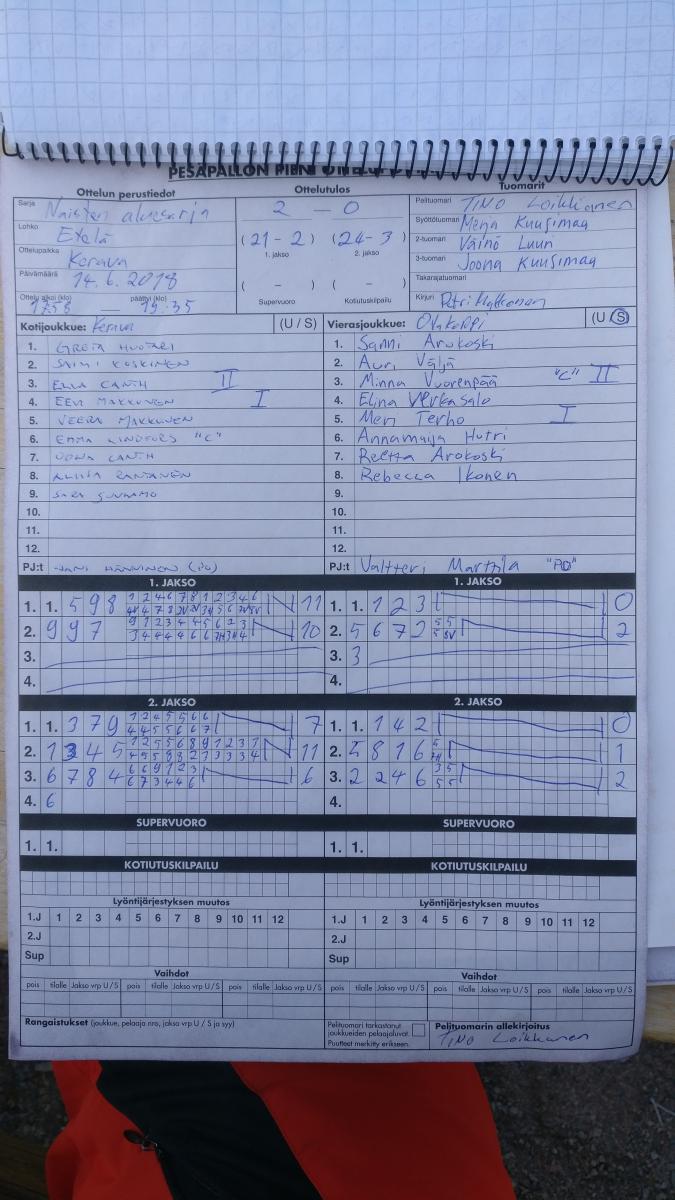 PESÄPALLON PIENI
Ottelun perustiedot
Sarja Naisten aluesarja
Lohko Etelä
Ottelupaikka Kerava
Päivämäärä 14.6.2018
Ottelu alkoi (klo) päättyi (klo)
17:58 — 19:35
Ottelutulos
2 – 0
(21 – 2) (24 – 3)
1. jakso 2. jakso
( – ) ( – )
Supervuoro Kotiutuskilpailu
Tuomarit
Pelituomari TINO Loikkanen
Syöttötuomari Merja Kuusimaa
2-tuomari Väinö Luuri
3-tuomari Joona Kuusimaa
Takarajatuomari
Kirjuri Petri Matkonen
Kotijoukkue: Kerava (U / S)
1. GRETA HUOTARI
2. SAIMI KOSKINEN
3. ELLA CANTH II
4. EEVI MAKKONEN I
5. VEERA MAKKONEN
6. EMMA LINDFORS "C"
7. OONA CANTH
8. RANTANEN
9. SARA
10.
11.
12.
PJ:t JANI HÄNNINEN
Vierasjoukkue: (U / S)
1. Sanni Arokoski
2. Auri Väljä
3. Minna Vuorenpää "C" II
4. Elina Verkasalo
5. Meri Terho I
6. Annamaija Hutri
7. Reetta Arokoski
8. Rebecca Ikonen
9.
10.
11.
12.
PJ:t Valtteri Marttila "PO"
1. JAKSO
1. 1. 5 9 8 11
2. 9 9 7 10
3.
4.
1. JAKSO
1. 1. 1 2 3 0
2. 5 6 7 2 2
3. 3
4.
2. JAKSO
1. 1. 3 7 9 7
2. 1 3 4 5 11
3. 6 7 8 4 6
4. 6
2. JAKSO
1. 1. 1 4 2 0
2. 5 8 1 6 1
3. 2 2 4 6 2
4.
SUPERVUORO
1. 1.
SUPERVUORO
1. 1.
KOTIUTUSKILPAILU
KOTIUTUSKILPAILU
Lyöntijärjestyksen muutos
1.J 1 2 3 4 5 6 7 8 9 10 11 12
2.J
Sup
Lyöntijärjestyksen muutos
1.J 1 2 3 4 5 6 7 8 9 10 11 12
2.J
Sup
Vaihdot
pois tilalle Jakso vrp U / S pois tilalle Jakso vrp U / S pois tilalle Jakso vrp U / S
Vaihdot
pois tilalle Jakso vrp U / S pois tilalle Jakso vrp U / S pois tilalle Jakso vrp U / S
Rangaistukset (joukkue, pelaaja nro, jakso vrp U / S ja syy)
Pelituomari tarkastanut
joukkueiden pelaajaluvat.
Puutteet merkitty erikseen.
Pelituomarin allekirjoitus
TINO Loikkanen